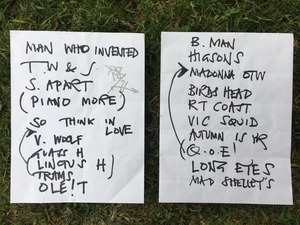 MAN WHO INVENTED
T.W & S.
S. APART
(PIANO MORE)
SO THINK IN
LOVE
V. WOLF
GLASS H
LINGUS H)
TRAMS
OLE!T
B. MAN
HIGSONS
MADONNA OTW
BIRDS HEAD
RT COAST
VIC SQUID
AUTUMN IS YR
(Q.O.E!
LONG EYES
MAD SHELLEY'S